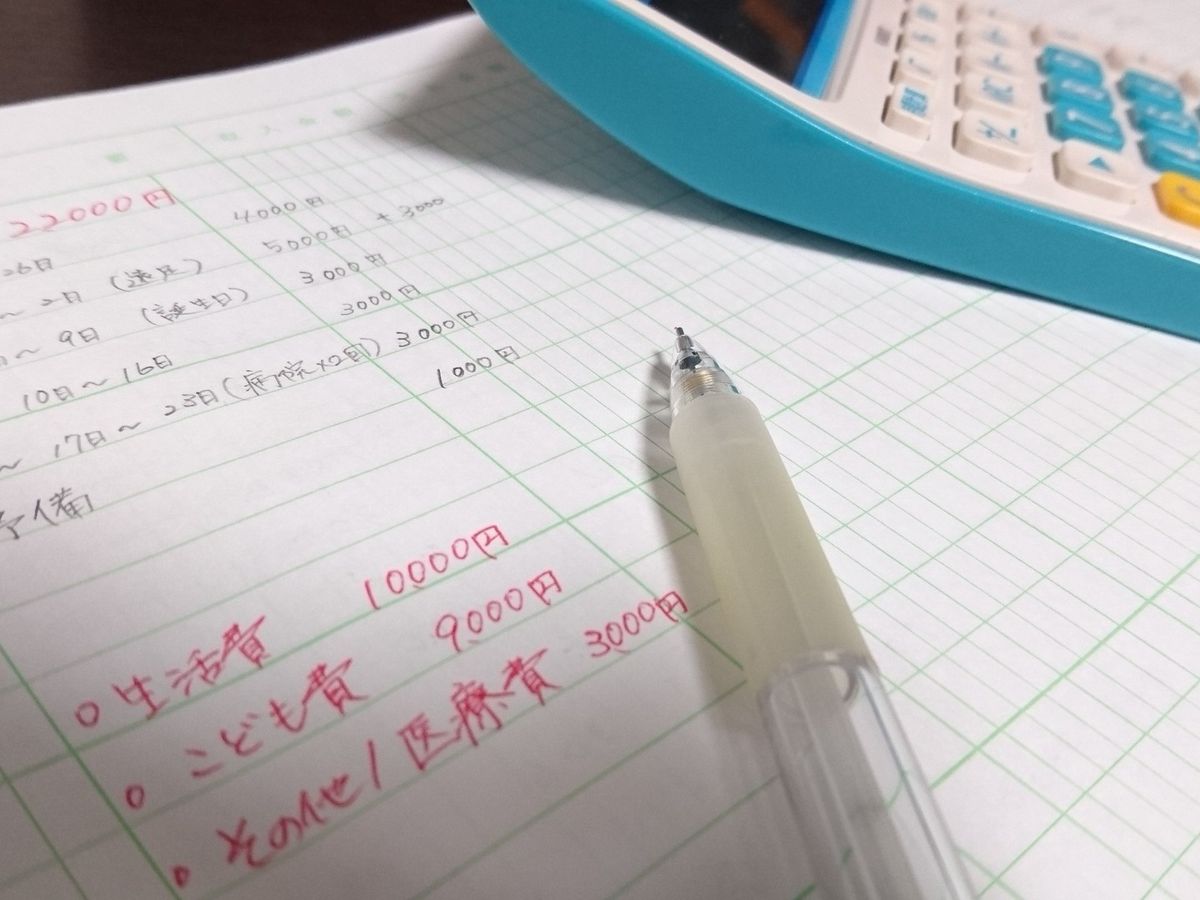 22000円
26日 4000円
～2日 (遠足) 5000円 + 3000
～9日 (誕生日) 3000円
10日～16日 3000円
～ 17日～23日(病院×2回) 3000円
予備 1000円
○生活費 10000円
○こども費 9000円
○その他/医療費 3000円